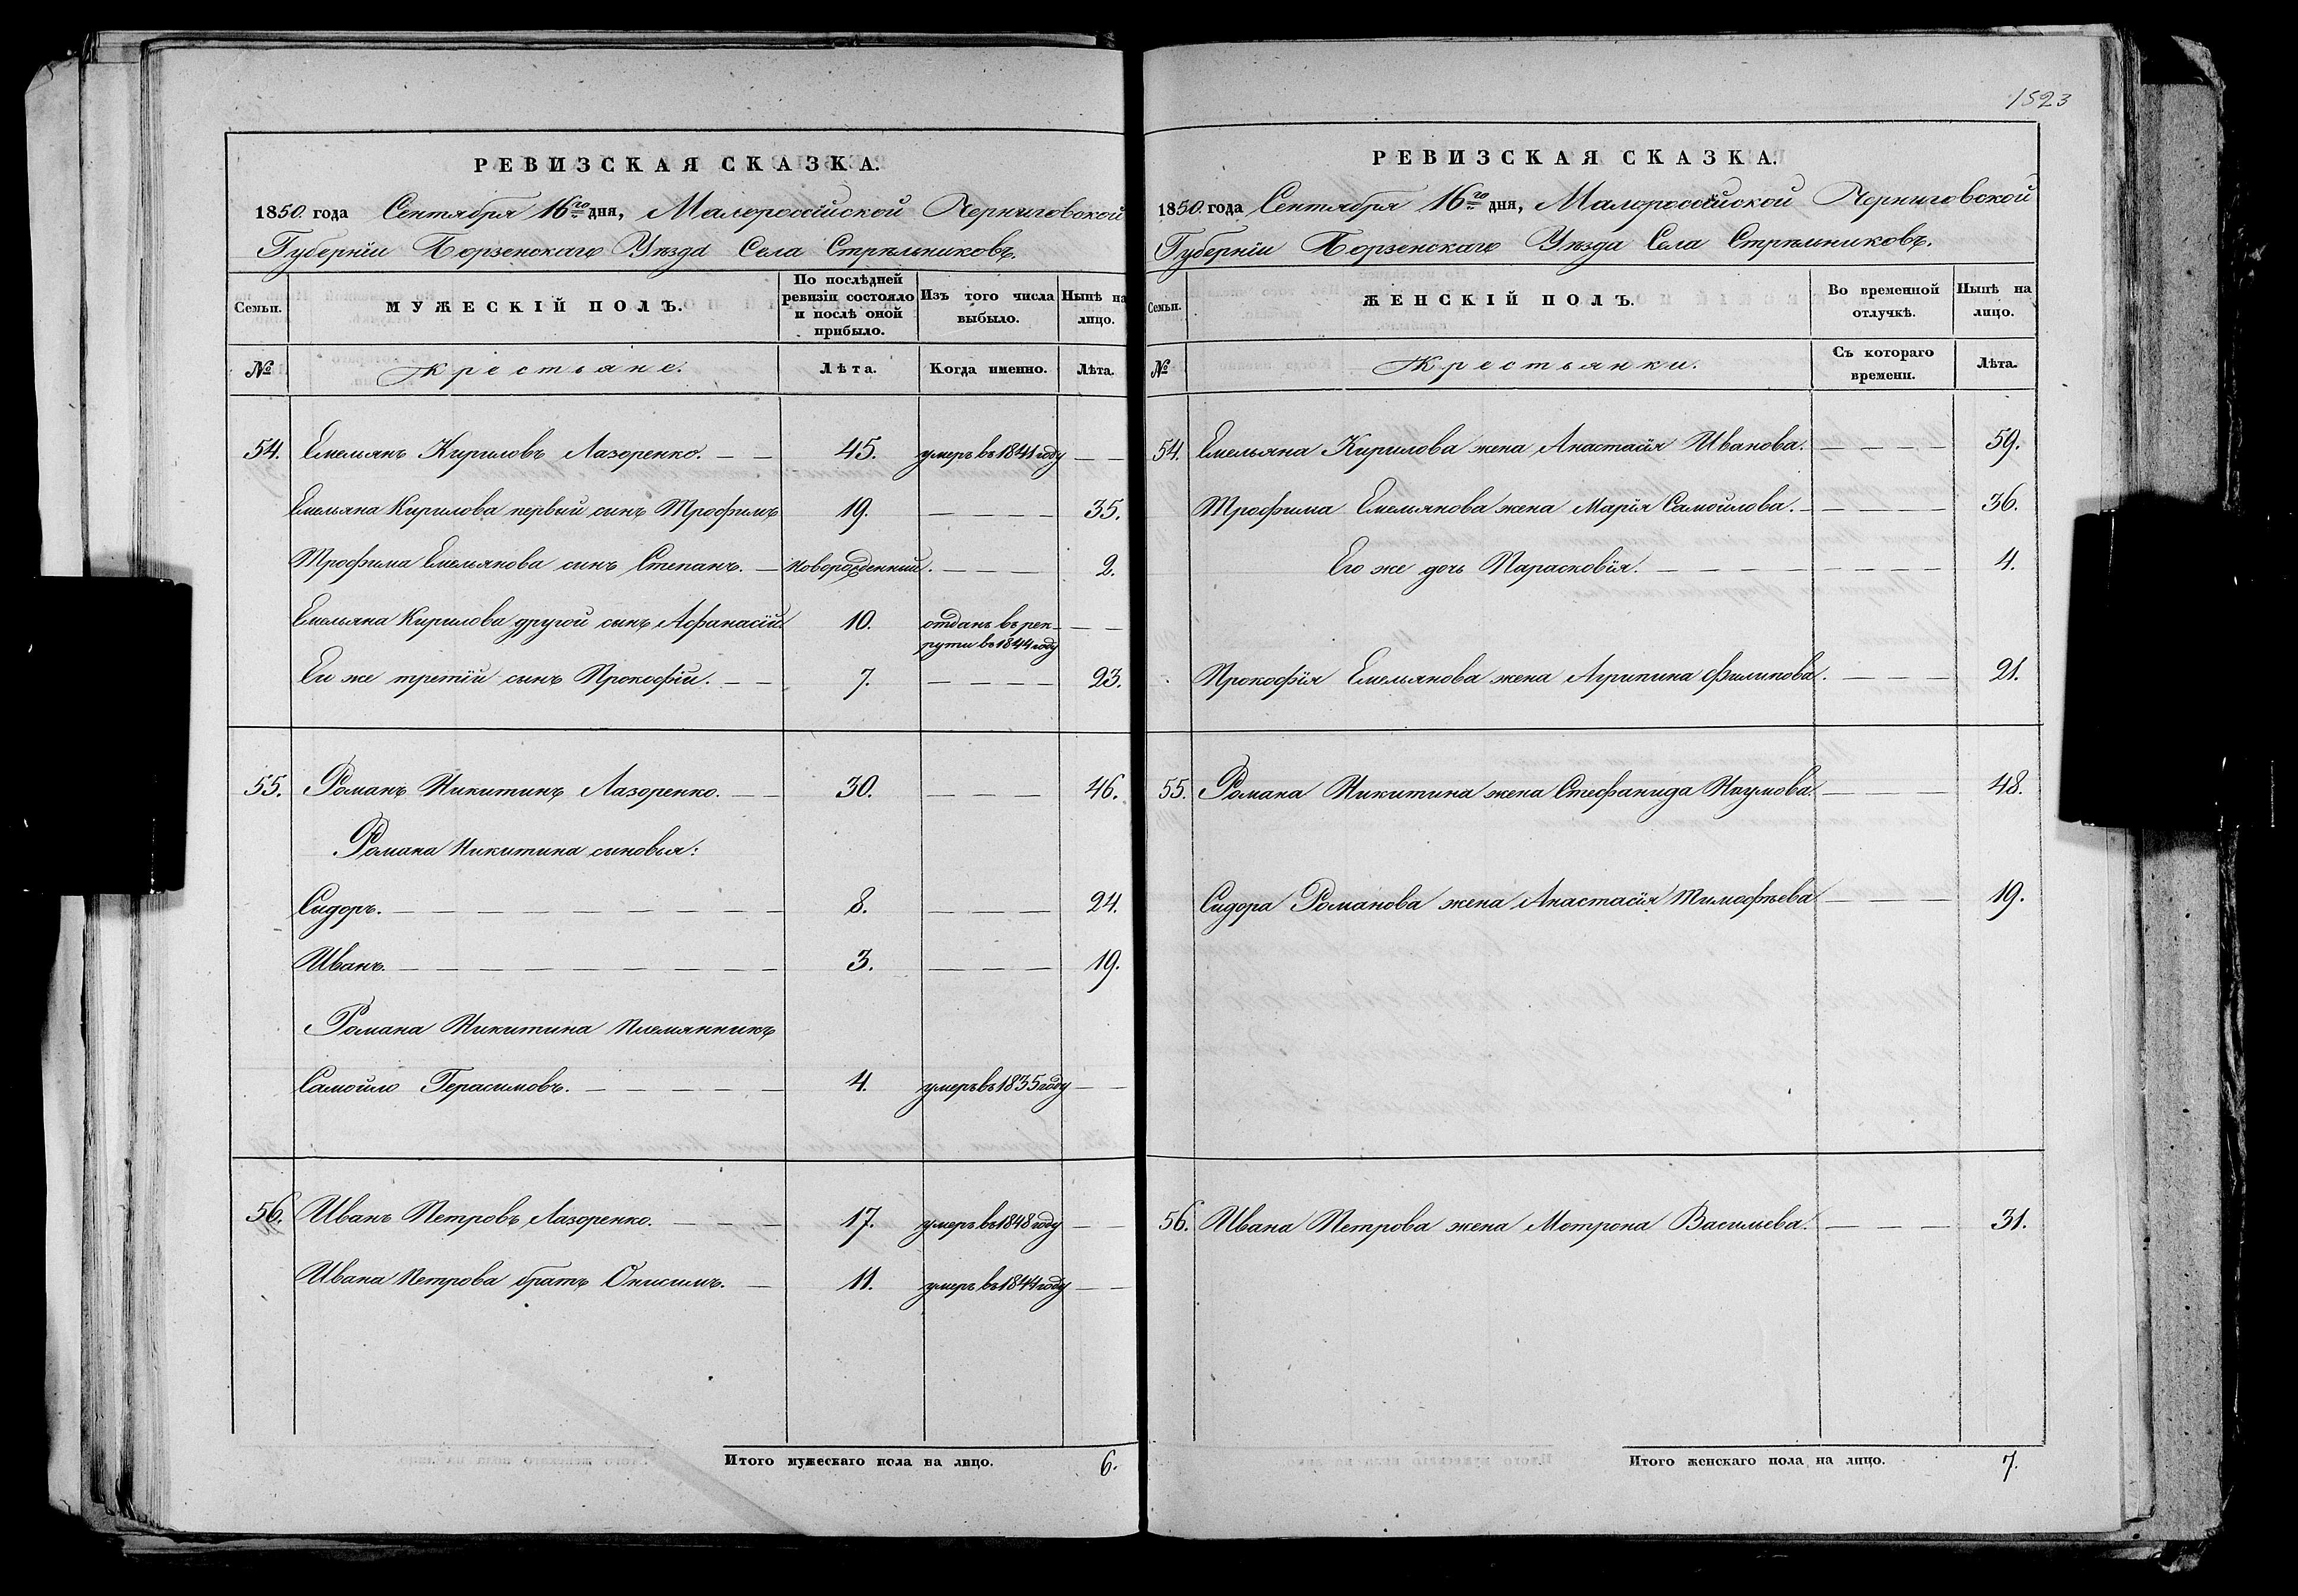 РЕВИЗСКАЯ СКАЗКА.
1850. года Сентября 16го дня, Малороссійской Черниговской
Губерніи Борзенскаго Уѣзда Села Стрѣльниковъ.
Семьи. МУЖЕСКІЙ ПОЛЪ. По послѣдней ревизіи состояло и послѣ оной прибыло. Изъ того числа выбыло. Нынѣ на лицо.
№ Крестьяне. Лѣта. Когда именно. Лѣта.
54. Емельянъ Кириловъ Лазоренко. — — 45. умеръ въ 1841 году — —
Емельяна Кирилова первый сынъ Трофимъ 19. — — — — 35.
Трофима Емельянова сынъ Степанъ. — новорожденный. — — — 2.
Емельяна Кирилова другой сынъ Афанасій. 10. отданъ въ рек- — —
руты въ 1844 году
Ею же третій сынъ Прокофій. — — 7. — — — — 23.
55. Романъ Никитинъ Лазоренко. — — 30. — — — 46.
Романа Никитина сыновья:
Сидоръ. — — — — — — — 8. — — — 24.
Иванъ. — — — — — — — 3. — — — 19.
Романа Никитина племянникъ
Самойло Герасимовъ. — — — — — 4. умеръ въ 1835 году — —
56. Иванъ Петровъ Лазоренко. — — — 17. умеръ въ 1848 году — —
Ивана Петрова братъ Онисимъ. — 11. умеръ въ 1844 году — —
Итого мужескаго пола на лицо. 6.
1523
РЕВИЗСКАЯ СКАЗКА.
1850. года Сентября 16го дня, Малороссійской Черниговской
Губерніи Борзенскаго Уѣзда Села Стрѣльниковъ.
Семьи. ЖЕНСКІЙ ПОЛЪ. Во временной отлучкѣ. Нынѣ на лицо.
№ Крестьянки. Съ котораго времени. Лѣта.
54. Емельяна Кирилова жена Анастасія Иванова. — — — — 59.
Трофима Емельянова жена Марія Самойлова. — — — — — 36.
Его же дочь Парасковія. — — — — — — — — 4.
Прокофія Емельянова жена Агрипина Филипова. — — — 21.
55. Романа Никитина жена Стефанида Наумова. — — — 48.
Сидора Романова жена Анастасія Тимофѣева — — — 19.
56. Ивана Петрова жена Мотрона Васильева. — — — 31.
Итого женскаго пола на лицо. 7.